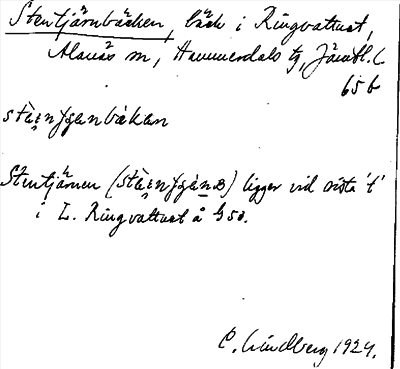 Stentjärnbäcken, bäck i Ringvattnet,
Alanäs sn, Hammerdals tg, Jämtl. l.
65 b
Stentjärnen ligger vid sista 't'
i L. Ringvattnet å G 50.
C. Lindberg 1924.